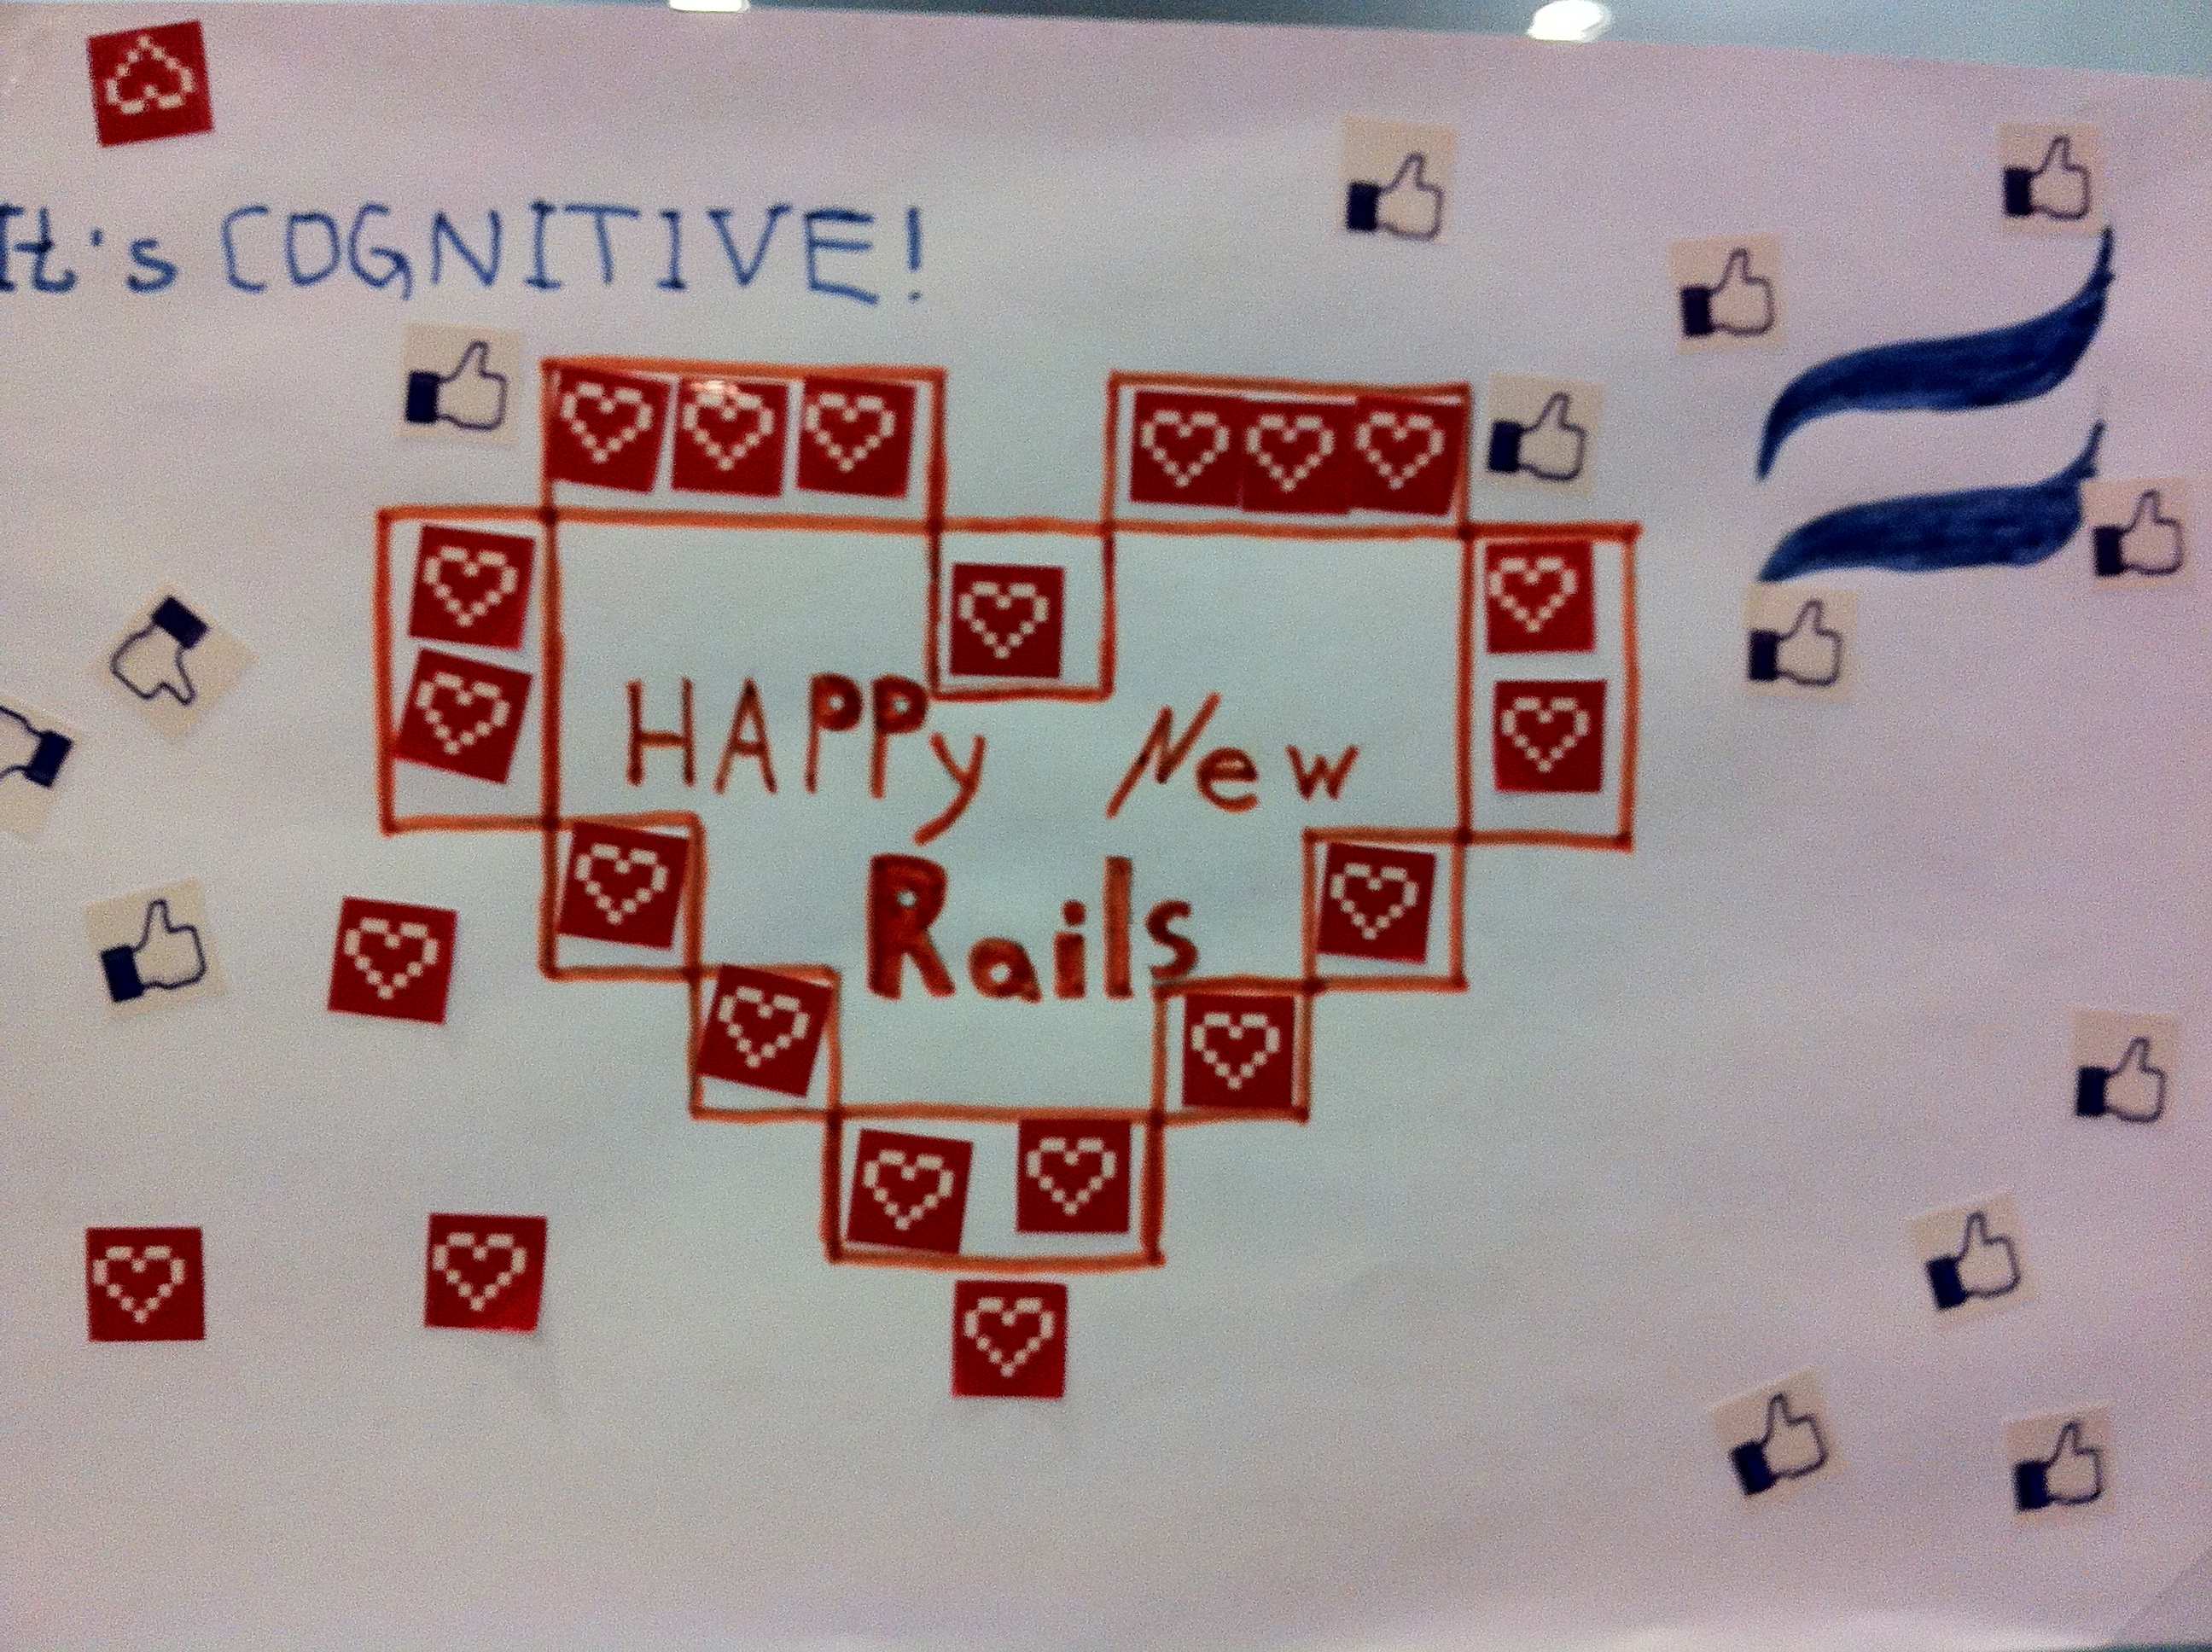 It's COGNITIVE!
HAPPy New
Rails